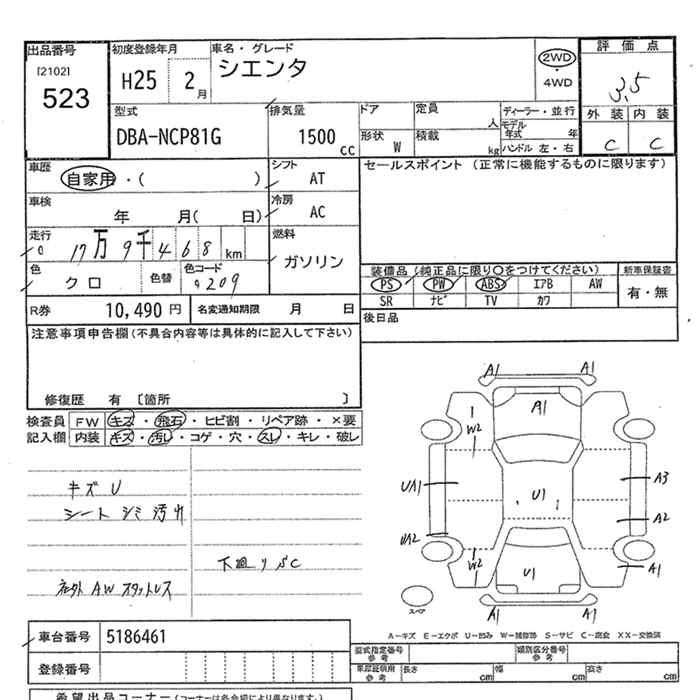 出品番号
[2102]
523
初度登録年月
H25 2月
車名・グレード
シエンタ
2WD
・
4WD
評価点
3.5
外装 内装
C C
型式
DBA-NCP81G
排気量
1500 cc
ドア 定員 人
形状 W 積載 kg
ディーラー・並行
モデル年式 年
ハンドル 左・右
車歴
自家用・( )
シフト
AT
車検
年 月( 日)
冷房
AC
走行
17万9千468 km
燃料
ガソリン
色
クロ
色替
色コード
209
R券 10,490 円
名変通知期限 月 日
セールスポイント (正常に機能するものに限ります)
装備品 (純正品に限り○をつけてください)
PS PW ABS エアB AW
SR ナビ TV カワ
新車保証書
有・無
後日品
注意事項申告欄 (不具合内容等は具体的に記入して下さい)
修復歴 有 [箇所 ]
検査員記入欄
FW キズ・飛石・ヒビ割・リペア跡・×要
内装 キズ・汚れ・コゲ・穴・スレ・キレ・破レ
キズ U
シート シミ 汚れ
下廻り S C
社外 AW スタットレス
A1 A1
A1
W2
UA1
U1
A3
A2
UA2
W2
U1
A1
A1 A1
スペア
A-キズ E-エクボ U-凹み W-補修跡 S-サビ C-腐食 XX-交換済
車台番号 5186461
登録番号
型式指定番号 参考
類別区分番号 参考
車庫証明寸法 参考 長さ cm 幅 cm 高さ cm
希望出品コーナー (コーナーは各会場により異なります。)